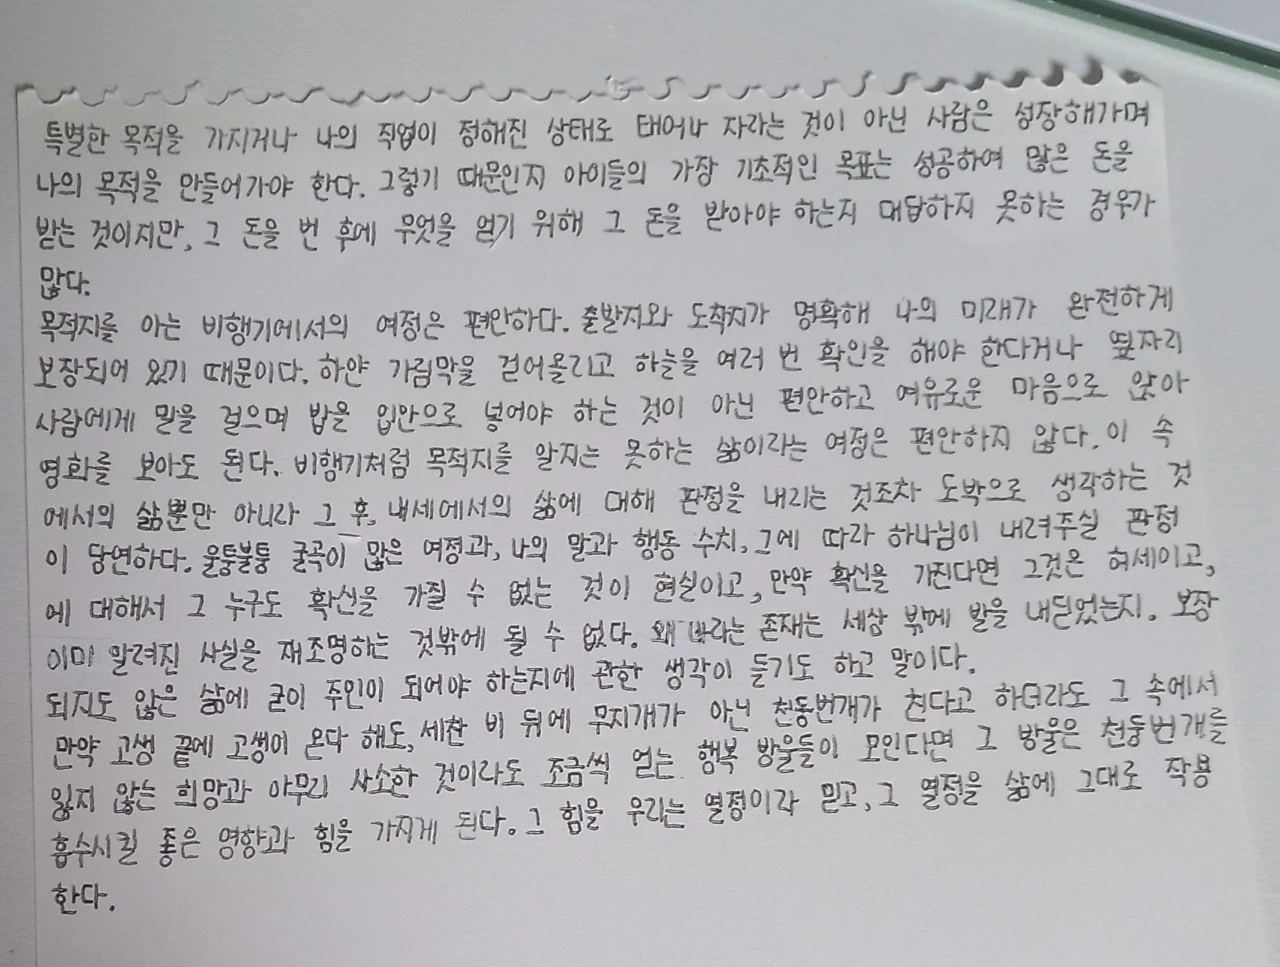 특별한 목적을 가지거나 나의 직업이 정해진 상태로 태어나 자라는 것이 아닌 사람은 성장해가며
나의 목적을 만들어가야 한다. 그렇기 때문인지 아이들의 가장 기초적인 목표는 성공하여 많은 돈을
받는 것이지만, 그 돈을 번 후에 무엇을 얻기 위해 그 돈을 받아야 하는지 대답하지 못하는 경우가
많다.
목적지를 아는 비행기에서의 여정은 편안하다. 출발지와 도착지가 명확해 나의 미래가 완전하게
보장되어 있기 때문이다. 하얀 가림막을 걷어올리고 하늘을 여러 번 확인을 해야 한다거나 옆자리
사람에게 말을 걸으며 밥을 입안으로 넣어야 하는 것이 아닌 편안하고 여유로운 마음으로 앉아
영화를 보아도 된다. 비행기처럼 목적지를 알지는 못하는 삶이라는 여정은 편안하지 않다. 이 속
에서의 삶뿐만 아니라 그 후, 내세에서의 삶에 대해 판정을 내리는 것조차 도박으로 생각하는 것
이 당연하다. 울퉁불퉁 굴곡이 많은 여정과, 나의 말과 행동 수치, 그에 따라 하나님이 내려주실 판정
에 대해서 그 누구도 확신을 가질 수 없는 것이 현실이고, 만약 확신을 가진다면 그것은 허세이고,
이미 알려진 사실을 재조명하는 것밖에 될 수 없다. 왜 나라는 존재는 세상 밖에 발을 내딛었는지. 보장
되지도 않은 삶에 굳이 주인이 되어야 하는지에 관한 생각이 들기도 하고 말이다.
만약 고생 끝에 고생이 온다 해도, 세찬 비 뒤에 무지개가 아닌 천둥번개가 친다고 하더라도 그 속에서
잃지 않는 희망과 아무리 사소한 것이라도 조금씩 얻는 행복 방울들이 모인다면 그 방울은 천둥번개를
흡수시킬 좋은 영향과 힘을 가지게 된다. 그 힘을 우리는 열정이라 믿고, 그 열정을 삶에 그대로 작용
한다.